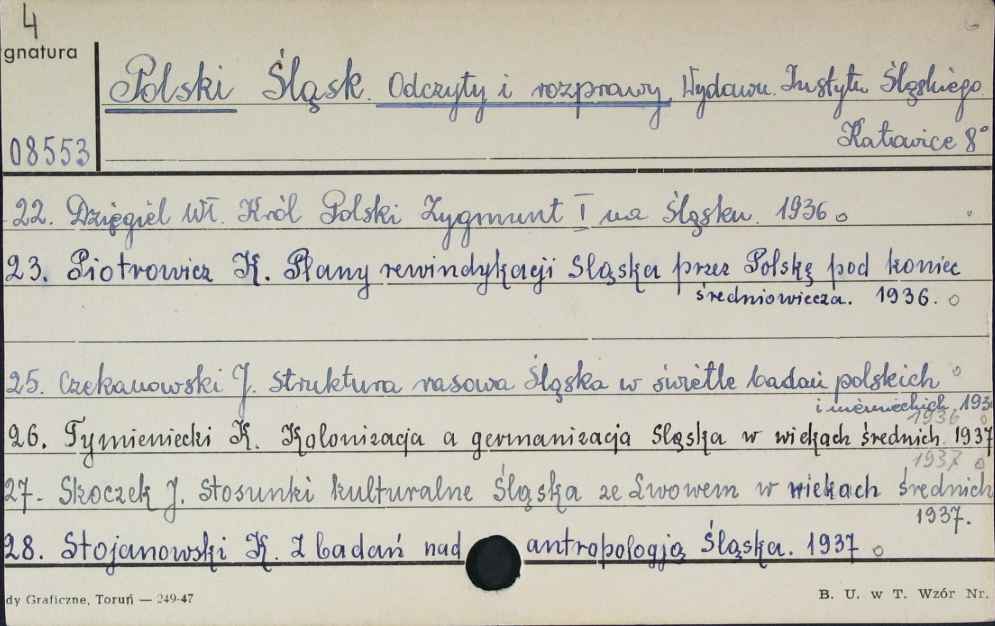 4
gnatura
08553
Polski Śląsk. Odczyty i rozprawy, Wydawn. Instytu Śląskiego
Katowice 8°
22. Dzięgiel Wł. Król Polski Zygmunt I na Śląsku. 1936
23. Piotrowicz K. Plany rewindykacji Śląska przez Polskę pod koniec
średniowiecza. 1936.
25. Czekanowski J. Struktura rasowa Śląska w świetle badań polskich
i niemieckich. 193
1936
26. Tymieniecki K. Kolonizacja a germanizacja Śląska w wiekach średnich. 1937
1937
27. Skoczek J. Stosunki kulturalne Śląska ze Lwowem w wiekach średnich
1937.
28. Stojanowski K. Z badań nad antropologją Śląska. 1937
dy Graficzne, Toruń — 249-47
B. U. w T. Wzór Nr.